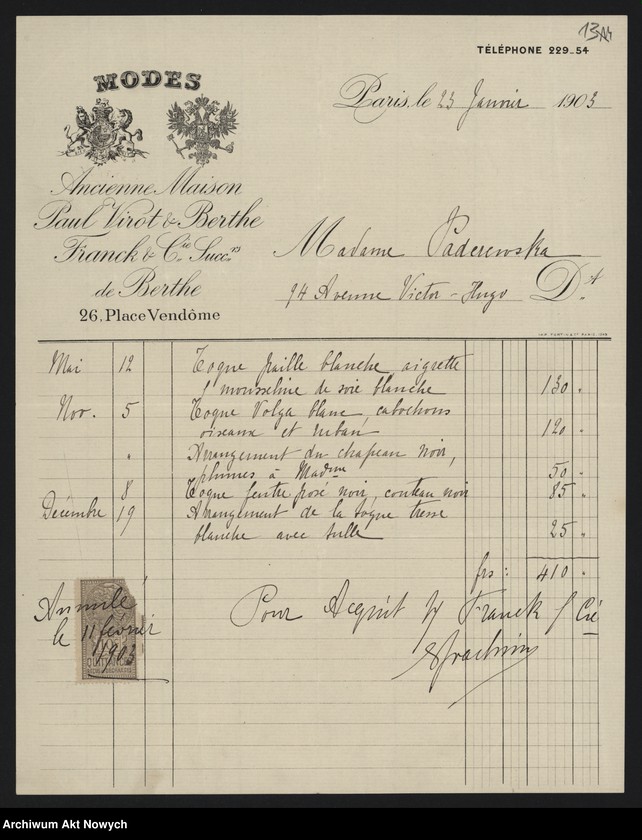 TÉLÉPHONE 229_54
MODES
Paris, le 23 Janvier 1903
Ancienne Maison
Paul Virot & Berthe
Franck & Cie Succrs
de Berthe
26, Place Vendôme
Madame Paderewska
94 Avenue Victor-Hugo Dt
Mai 12 Toque paille blanche, aigrette
mousseline de soie blanche 130 "
Nov. 5 Toque Volga blanc, cabochons
oiseaux et ruban 120 "
" Arrangement du chapeau noir,
plumes à Madme 50 "
8 Toque feutre posé noir, couteau noir 85 "
Décembre 19 Arrangement de la toque tresse
blanche avec tulle 25 "
frs : 410 "
Pour Acquit Franck / Cie
Annulé
le 11 février
1903
QUITTANCES
Archiwum Akt Nowych